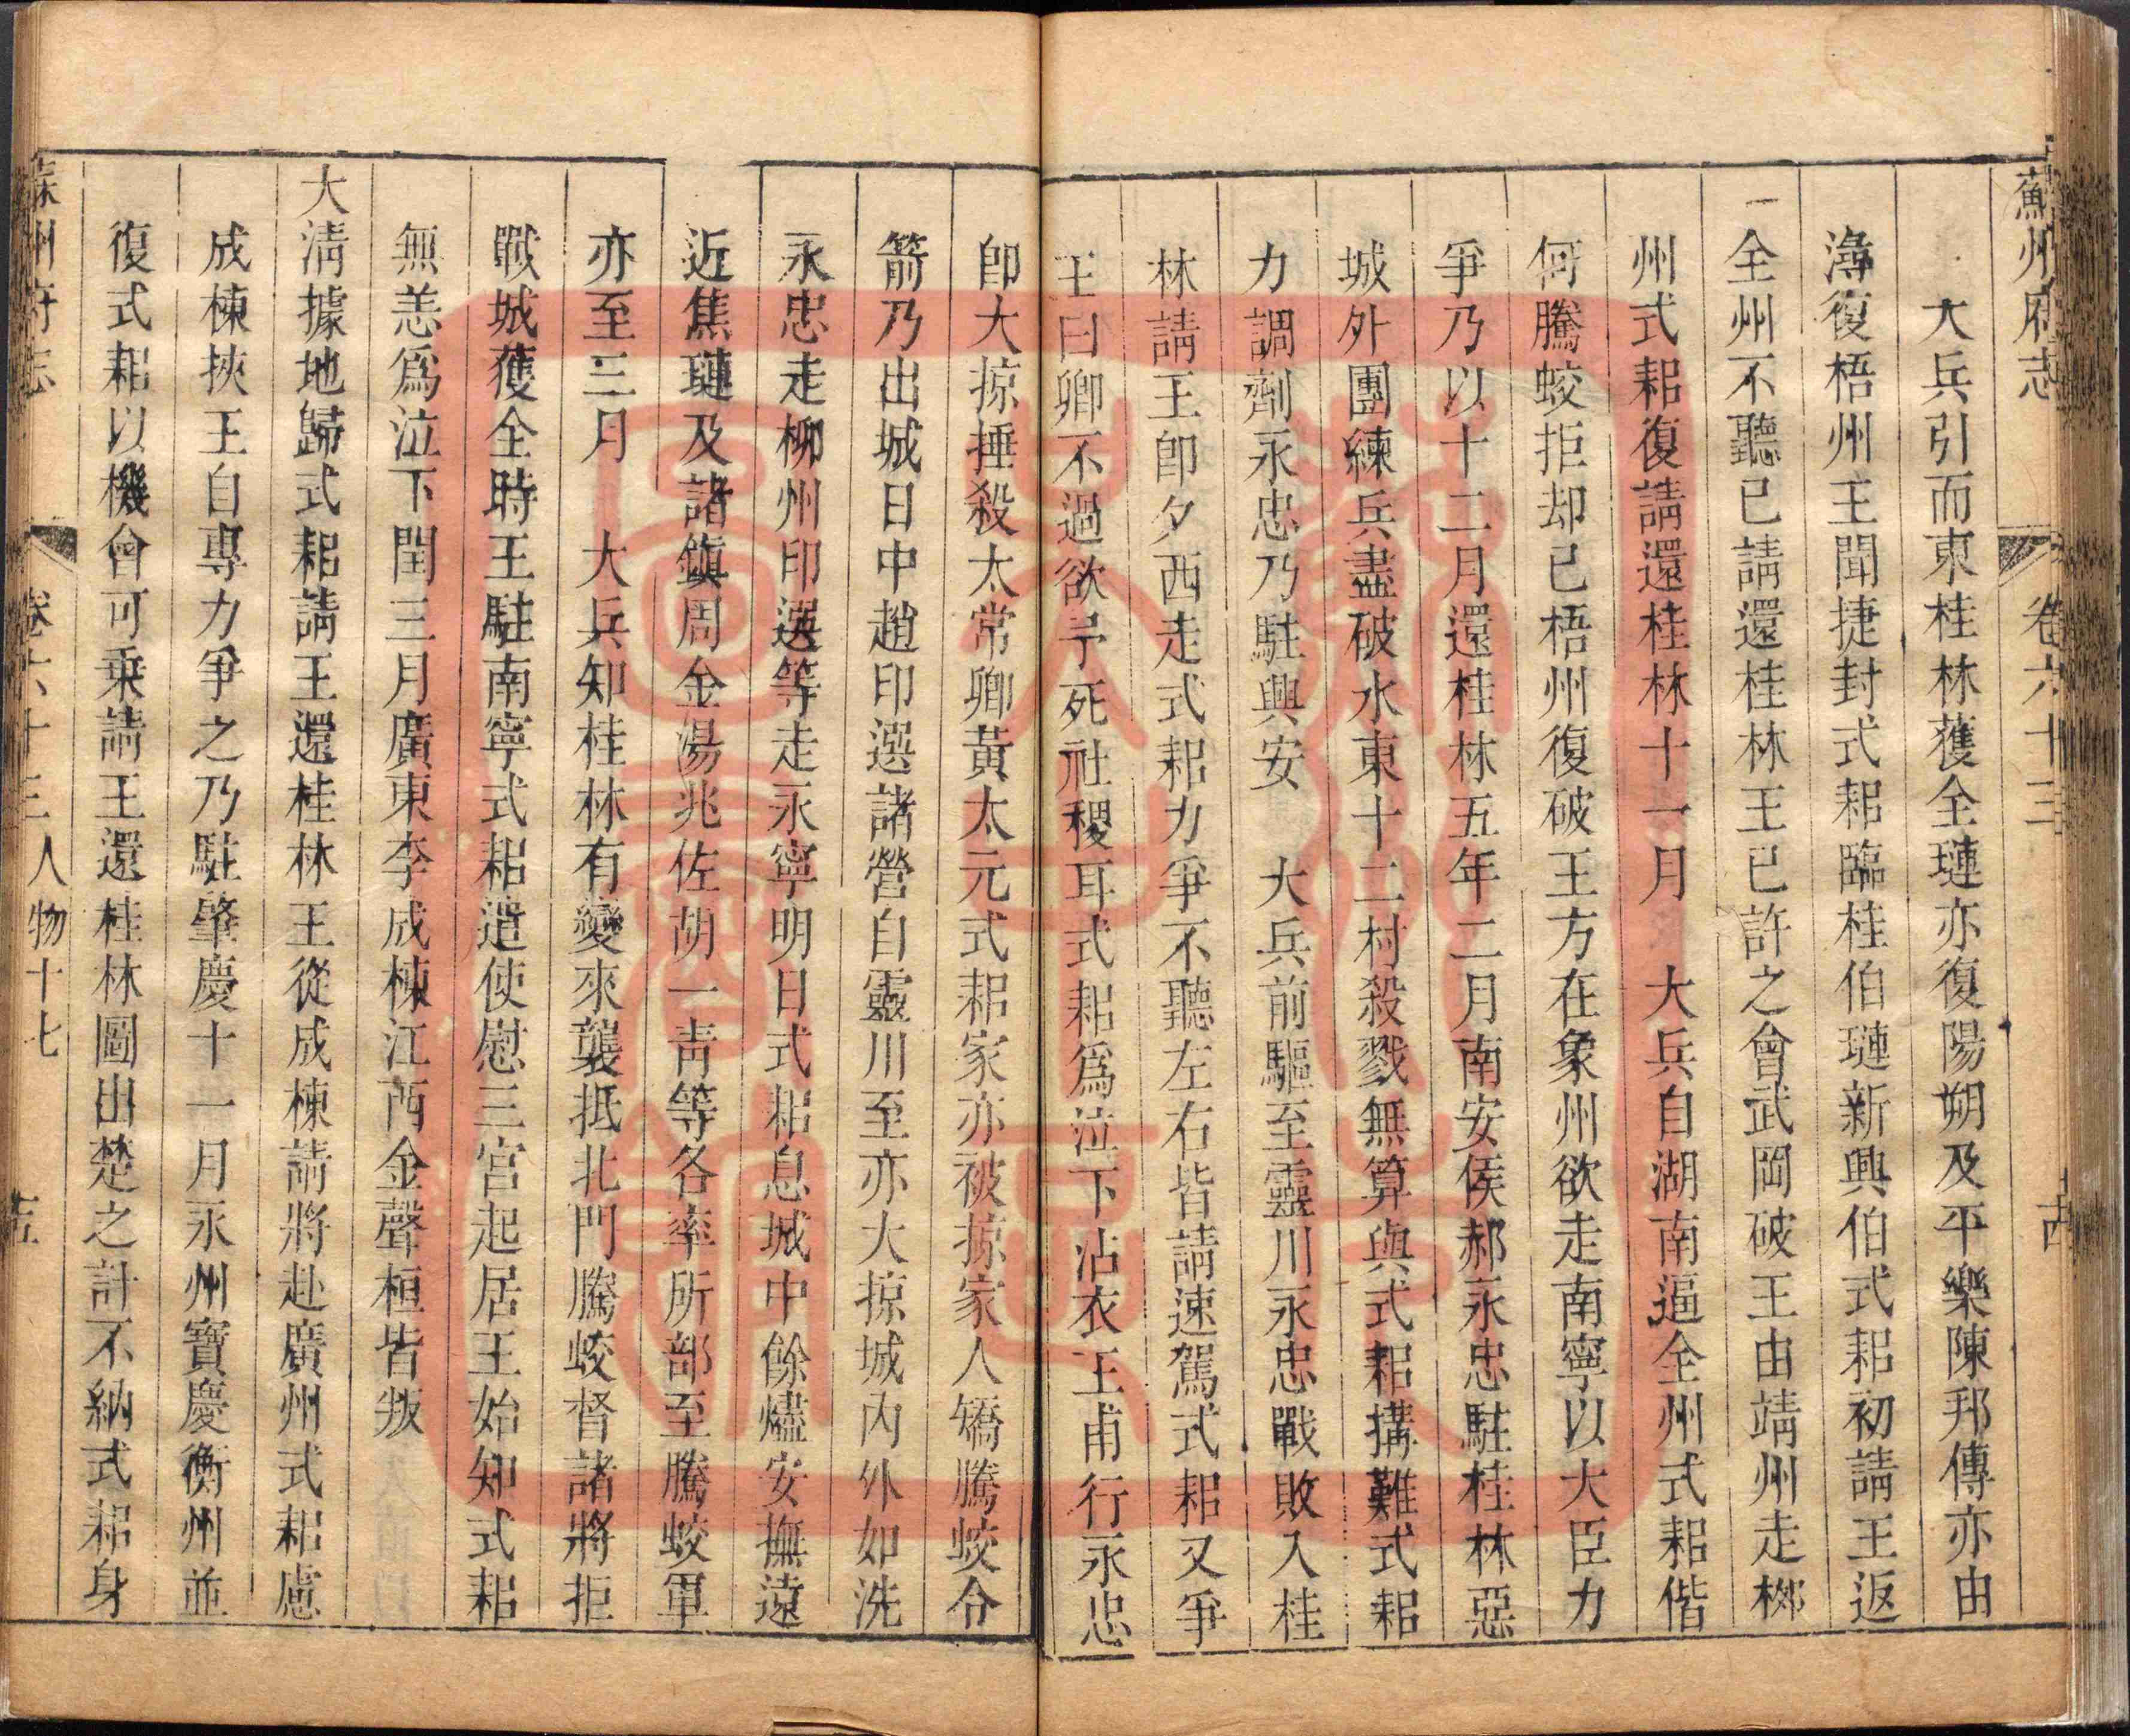 蘇州府志 卷六十三
大兵引而東桂林獲全璉亦復陽朔及平樂陳邦傳亦由
潯復梧州王聞捷封式耜臨桂伯璉新興伯式耜初請王返
全州不聽已請還桂林王已許之會武岡破王由靖州走柳
州式耜復請還桂林十一月 大兵自湖南逼全州式耜偕
何騰蛟拒却已梧州復破王方在象州欲走南寧以大臣力
爭乃以十二月還桂林五年二月南安侯郝永忠駐桂林惡
城外團練兵盡破水東十二村殺戮無算與式耜搆難式耜
力調劑永忠乃駐興安 大兵前驅至靈川永忠戰敗入桂
林請王卽夕西走式耜力爭不聽左右皆請速駕式耜又爭
王曰卿不過欲予死社稷耳式耜爲泣下沾衣王甫行永忠
卽大掠捶殺太常卿黃太元式耜家亦被掠家人矯騰蛟令
箭乃出城日中趙印選諸營自靈川至亦大掠城內外如洗
永忠走柳州印選等走永寧明日式耜息城中餘燼安撫遠
近焦璉及諸鎮周金湯兆佐胡一靑等各率所部至騰蛟軍
亦至三月 大兵知桂林有變來襲抵北門騰蛟督諸將拒
戰城獲全時王駐南寧式耜遣使慰三宮起居王始知式耜
無恙爲泣下閏三月廣東李成棟江西金聲桓皆叛
大淸據地歸式耜請王還桂林王從成棟請將赴廣州式耜慮
成棟挾王自專力爭之乃駐肇慶十一月永州寶慶衡州並
復式耜以機會可乗請王還桂林圖出楚之計不納式耜身
蘇州府志 卷六十三 人物十七